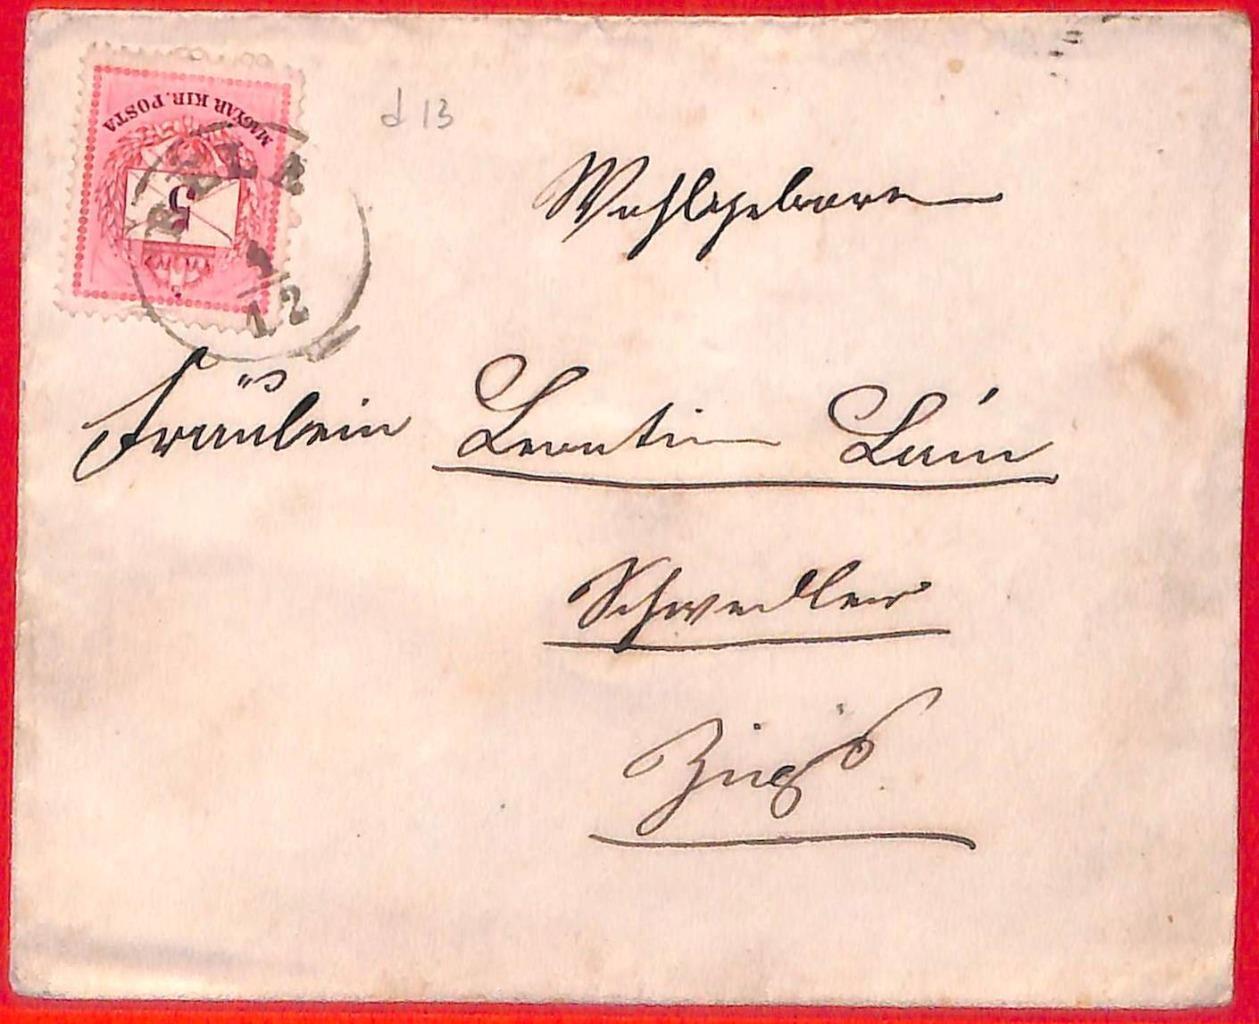 MAGYAR KIR. POSTA
5
BELA
1
12
d 13
Wohlgeboren
Fräulein Leontine
Schwedler
Zips